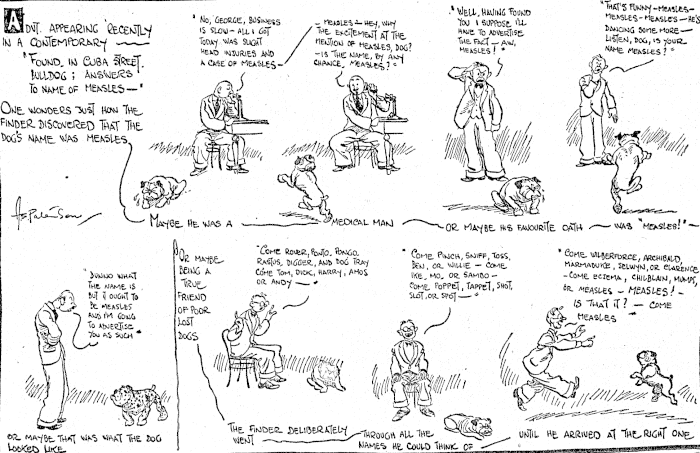 ADVT. APPEARING RECENTLY
IN A CONTEMPORARY —
"FOUND, IN CUBA STREET,
BULLDOG; ANSWERS
TO NAME OF MEASLES —"
ONE WONDERS JUST HOW THE
FINDER DISCOVERED THAT THE
DOG'S NAME WAS MEASLES
"NO, GEORGE, BUSINESS
IS SLOW — ALL I GOT
TODAY WAS SLIGHT
HEAD INJURIES AND
A CASE OF MEASLES —
— MEASLES — HEY, WHY
THE EXCITEMENT AT THE
MENTION OF MEASLES, DOG?
— IS THE NAME, BY ANY
CHANCE, MEASLES?"
"WELL, HAVING FOUND
YOU I SUPPOSE I'LL
HAVE TO ADVERTISE
THE FACT — AW,
MEASLES!"
"THAT'S FUNNY — MEASLES —
MEASLES — MEASLES — HE'S
DANCING SOME MORE —
LISTEN, DOG, IS YOUR
NAME MEASLES?"
MAYBE HE WAS A — MEDICAL MAN — OR MAYBE HIS FAVOURITE OATH — WAS "MEASLES!" —
"DUNNO WHAT
THE NAME IS
BUT IT OUGHT TO
BE MEASLES
AND I'M GOING
TO ADVERTISE
YOU AS SUCH"
OR MAYBE THAT WAS WHAT THE DOG
LOOKED LIKE
OR MAYBE
BEING A
TRUE
FRIEND
OF POOR
LOST
DOGS
"COME ROVER, PONTO, PONGO,
RASTUS, DIGGER, AND DOG TRAY
COME TOM, DICK, HARRY, AMOS
OR ANDY —"
"COME PINCH, SNIFF, TOSS,
BEN, OR WILLIE — COME
IKE, MO, OR SAMBO —
COME POPPET, TAPPET, SHOT,
SLOT, OR SPOT —"
"COME WILBERFORCE, ARCHIBALD,
MARMADUKE, SELWYN, OR CLARENCE
— COME ECZEMA, CHILBLAIN, MUMPS,
OR MEASLES — MEASLES! —
IS THAT IT? — COME
MEASLES —"
THE FINDER DELIBERATELY
WENT — THROUGH ALL THE
NAMES HE COULD THINK OF — UNTIL HE ARRIVED AT THE RIGHT ONE